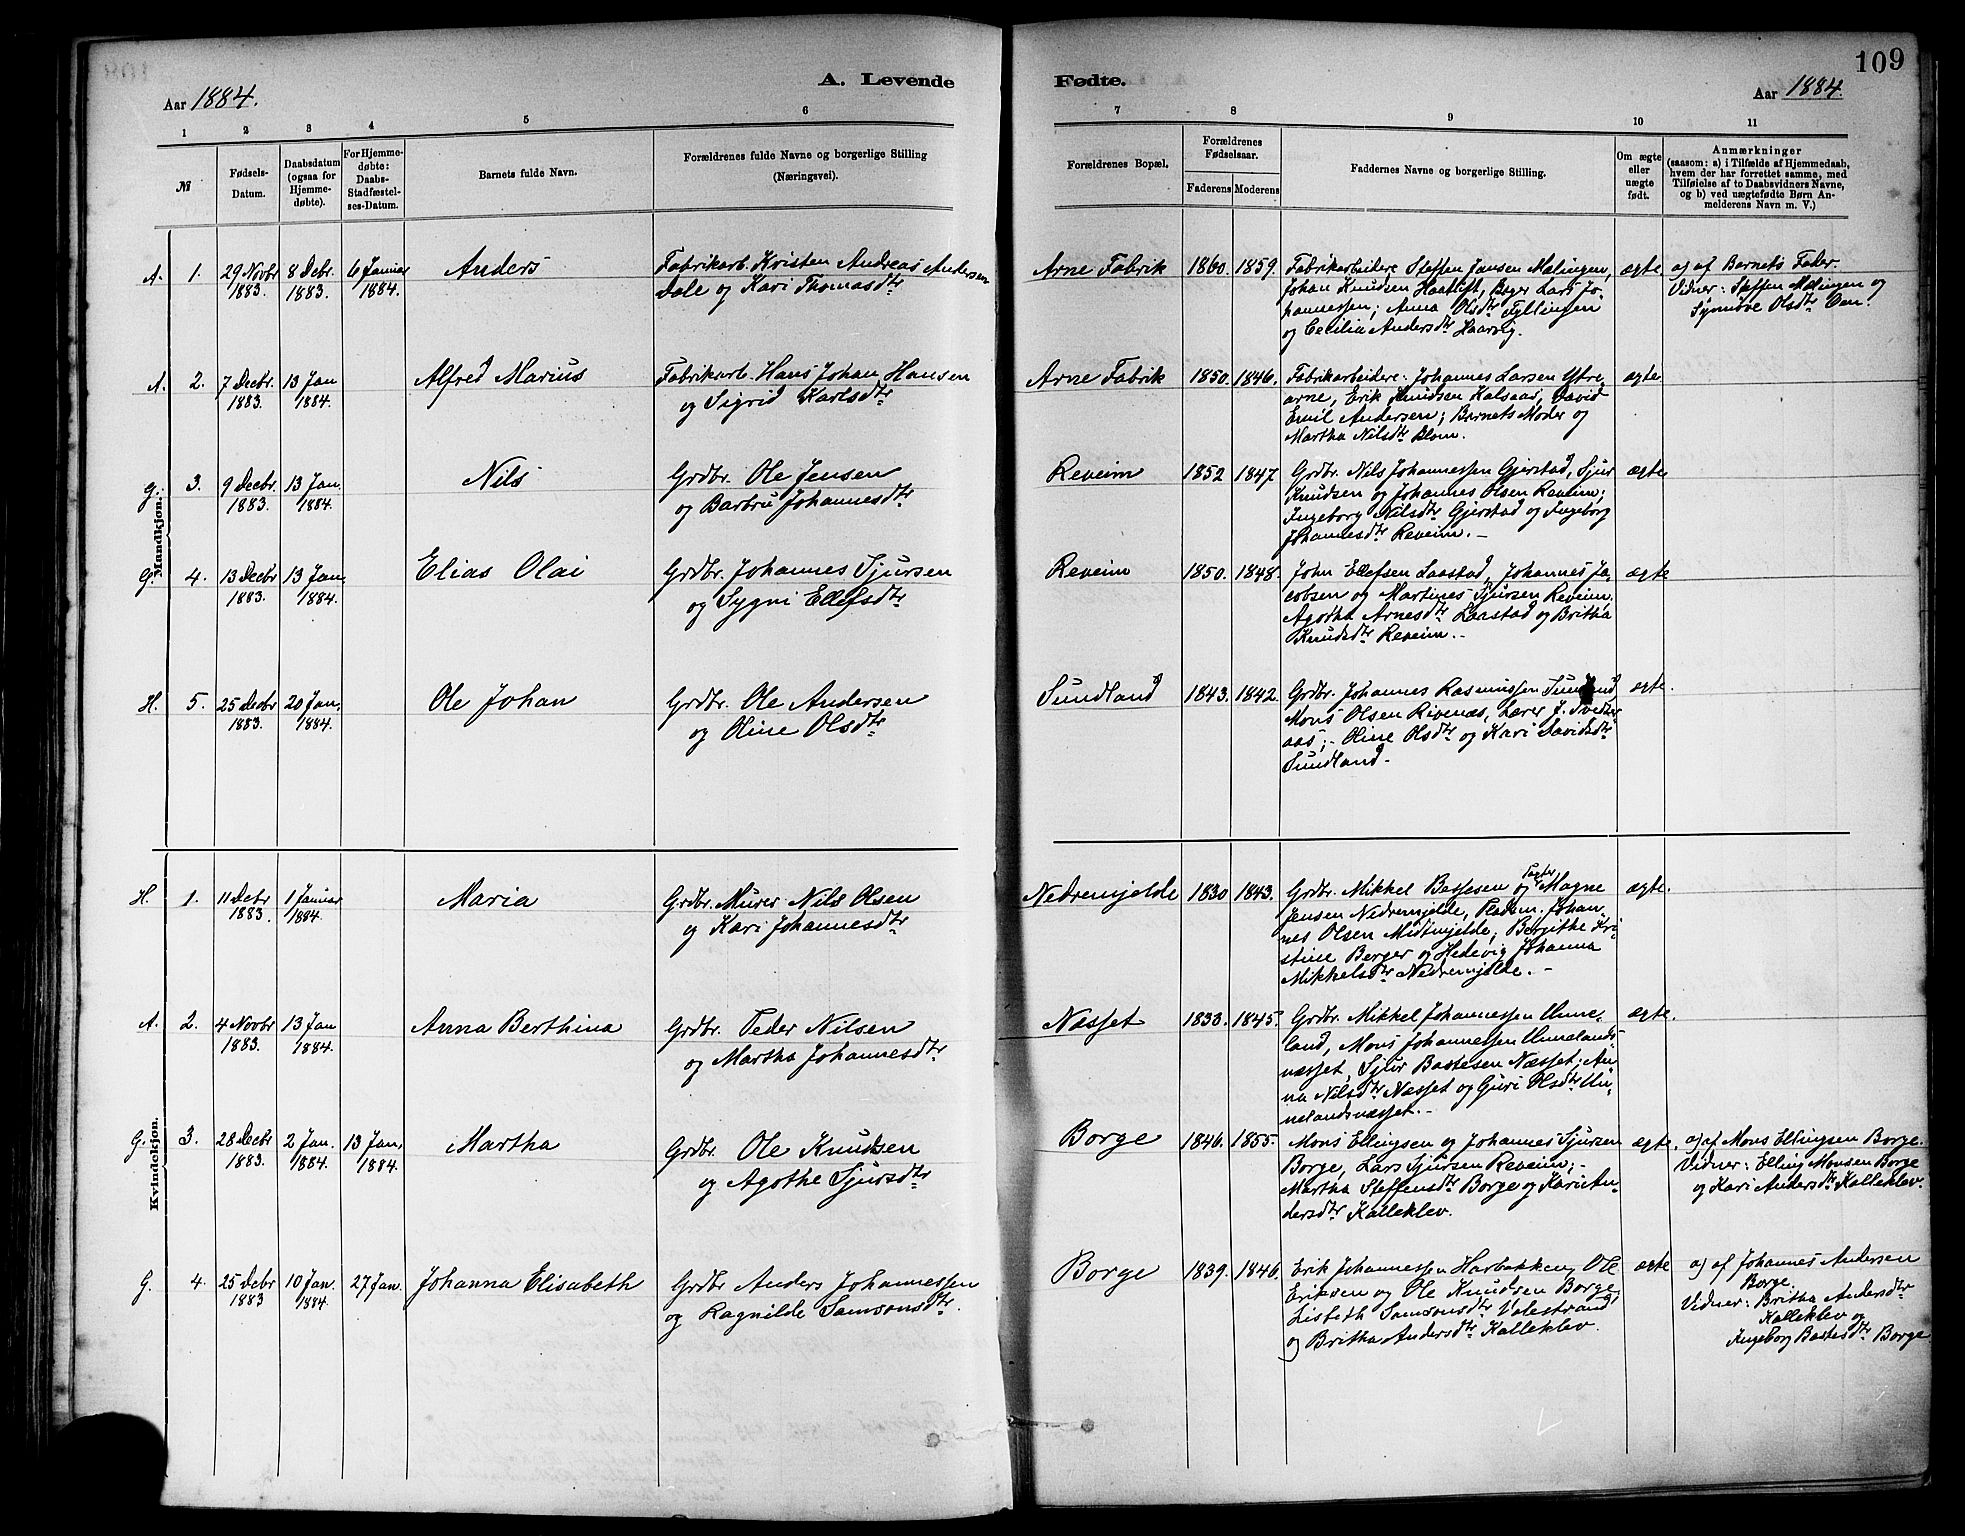 109
A. Levende Fødte.
Aar 1884.
Aar 1884.
1 2 3 4 5 6 7 8 9 10 11
№
Fødsels-
Datum.
Daabsdatum
(ogsaa for
Hjemme-
døbte).
For Hjemme-
døbte:
Daabs-
Stadfæstel-
ses-Datum.
Barnets fulde Navn.
Forældrenes fulde Navne og borgerlige Stilling
(Næringsvei).
Forældrenes Bopæl.
Forældrenes
Fødselsaar.
Faderens Moderens
Faddernes Navne og borgerlige Stilling.
Om ægte
eller
uægte
født.
Anmærkninger
(saasom: a) i Tilfælde af Hjemmedaab,
hvem der har forrettet samme, med
Tilføielse af to Daabsvidners Navne,
og b) ved uægtefødte Børn An-
melderens Navn m. V.)
Mandkjøn.
A. 1. 29 Novbr 1883. 8 Debr. 1883. 6 Januar 1884.
Anders
Fabrikarb. Kristen Andreas Andersen
Dale og Kari Thomasdtr
Arne Fabrik 1860. 1859.
Fabrikarbeidere Steffen Jansen Malingen,
Johan Knudsen Haatuft, Bager Lars Jo-
hannessen; Anna Olsdtr Tyllingen
og Cecilia Andersdtr Haarvig.
ægte
a) af Barnets Fader.
Vidner: Steffen Malingen og
Synnøve Olsdtr
A. 2. 7 Decbr. 1883. 13 Jan 1884.
Alfred Marius
Fabrikarb. Hans Johan Hansen
og Sigrid Karlsdtr
Arne Fabrik 1850. 1846.
Fabrikarbeidere: Johannes Larsen Ytre-
arne, Erik Knudsen Kalsaas, David
Emil Andersen; Barnets Moder og
Martha Nilsdtr Blom.
ægte
G. 3. 9 Decbr. 1883. 13 Jan. 1884.
Nils
Grdbr. Ole Jensen
og Barbru Johannesdtr
Reveim 1852 1847
Grdbr. Nils Johannessen Gjerstad, Sjur
Knudsen og Johannes Olsen Reveim;
Ingeborg Nilsdtr Gjerstad og Ingeborg
Johannesdtr Reveim. -
ægte
G. 4. 13 Decbr 1883. 13 Jan. 1884.
Elias Olai
Grdbr. Johannes Sjursen
og Sygni Ellefsdtr
Reveim 1850. 1848.
John Ellefsen Laastad, Johannes Ja-
cobsen og Martines Sjursen Reveim.
Agotha Arnesdtr Laastad og Britha
Knudsdtr Reveim. -
ægte
H. 5. 25 Decbr 1883. 20 Jan. 1884.
Ole Johan
Grdbr. Ole Andersen
og Oline Olsdtr
Sundland 1843. 1842.
Grdbr. Johannes Rasmussen Sundland
Mons Olsen Rivenæs, Lærer J.
aas; - Oline Olsdtr og Kari Davidsdtr
Sundland -
ægte.
Kvindekjøn.
H. 1. 11 Debr 1883. 1 Januar 1884.
Maria
Grdbr. Murer Nils Olsen
og Kari Johannesdtr
Nedremjelde 1830 1843.
Grdbr. Mikkel Bassesen og Magne
Jensen Nedremjelde, Pladsm. Johan-
nes Olsen Midtmjelde; Bergithe Kri-
stine Berger og Hedevig Johanna
Mikkelsdtr Nedremjelde. -
ægte.
A. 2. 4 Novbr 1883. 13 Jan 1884.
Anna Berthina
Grdbr. Peder Nilsen
og Martha Johannesdtr
Næsset 1838. 1845.
Grdbr. Mikkel Johannessen Unne-
land, Mons Johannessen Unnelands-
næsset, Sjur Bastesen Næsset; An-
na Nilsdtr Næsset og Guri Olsdtr Un-
nelandsnæsset. -
ægte.
G. 3. 28 Decbr 1883. 2 Jan. 1884. 13 Jan. 1884.
Martha
Grdbr. Ole Knudsen
og Agothe Sjursdtr
Borge 1846. 1855.
Mons Ellingsen og Johannes Sjursen
Borge, Lars Sjursen Reveim; -
Martha Steffensdtr Borge og Kari An-
dersdtr Kalleklev.
ægte.
a) af Mons Ellingsen Borge.
Vidner: Elling Monsen Borge
og Kari Andersdtr Kalleklev.
G. 4. 25 Debr 1883 10 Jan. 1884. 27 Jan.
Johanna Elisabeth
Grdbr Anders Johannessen
og Ragnilde Samsonsdtr.
Borge 1839. 1846.
Erik Johannessen Harbakken, Ole
Eriksen og Ole Knudsen Borge,
Lisbeth Samsonsdtr Valestrand
og Britha Andersdtr Kalleklev.
ægte
a) af Johannes Andersen
Borge.
Vidner: Britha Andersdtr
Kalleklev og
Ingeborg Bastesdtr Borge